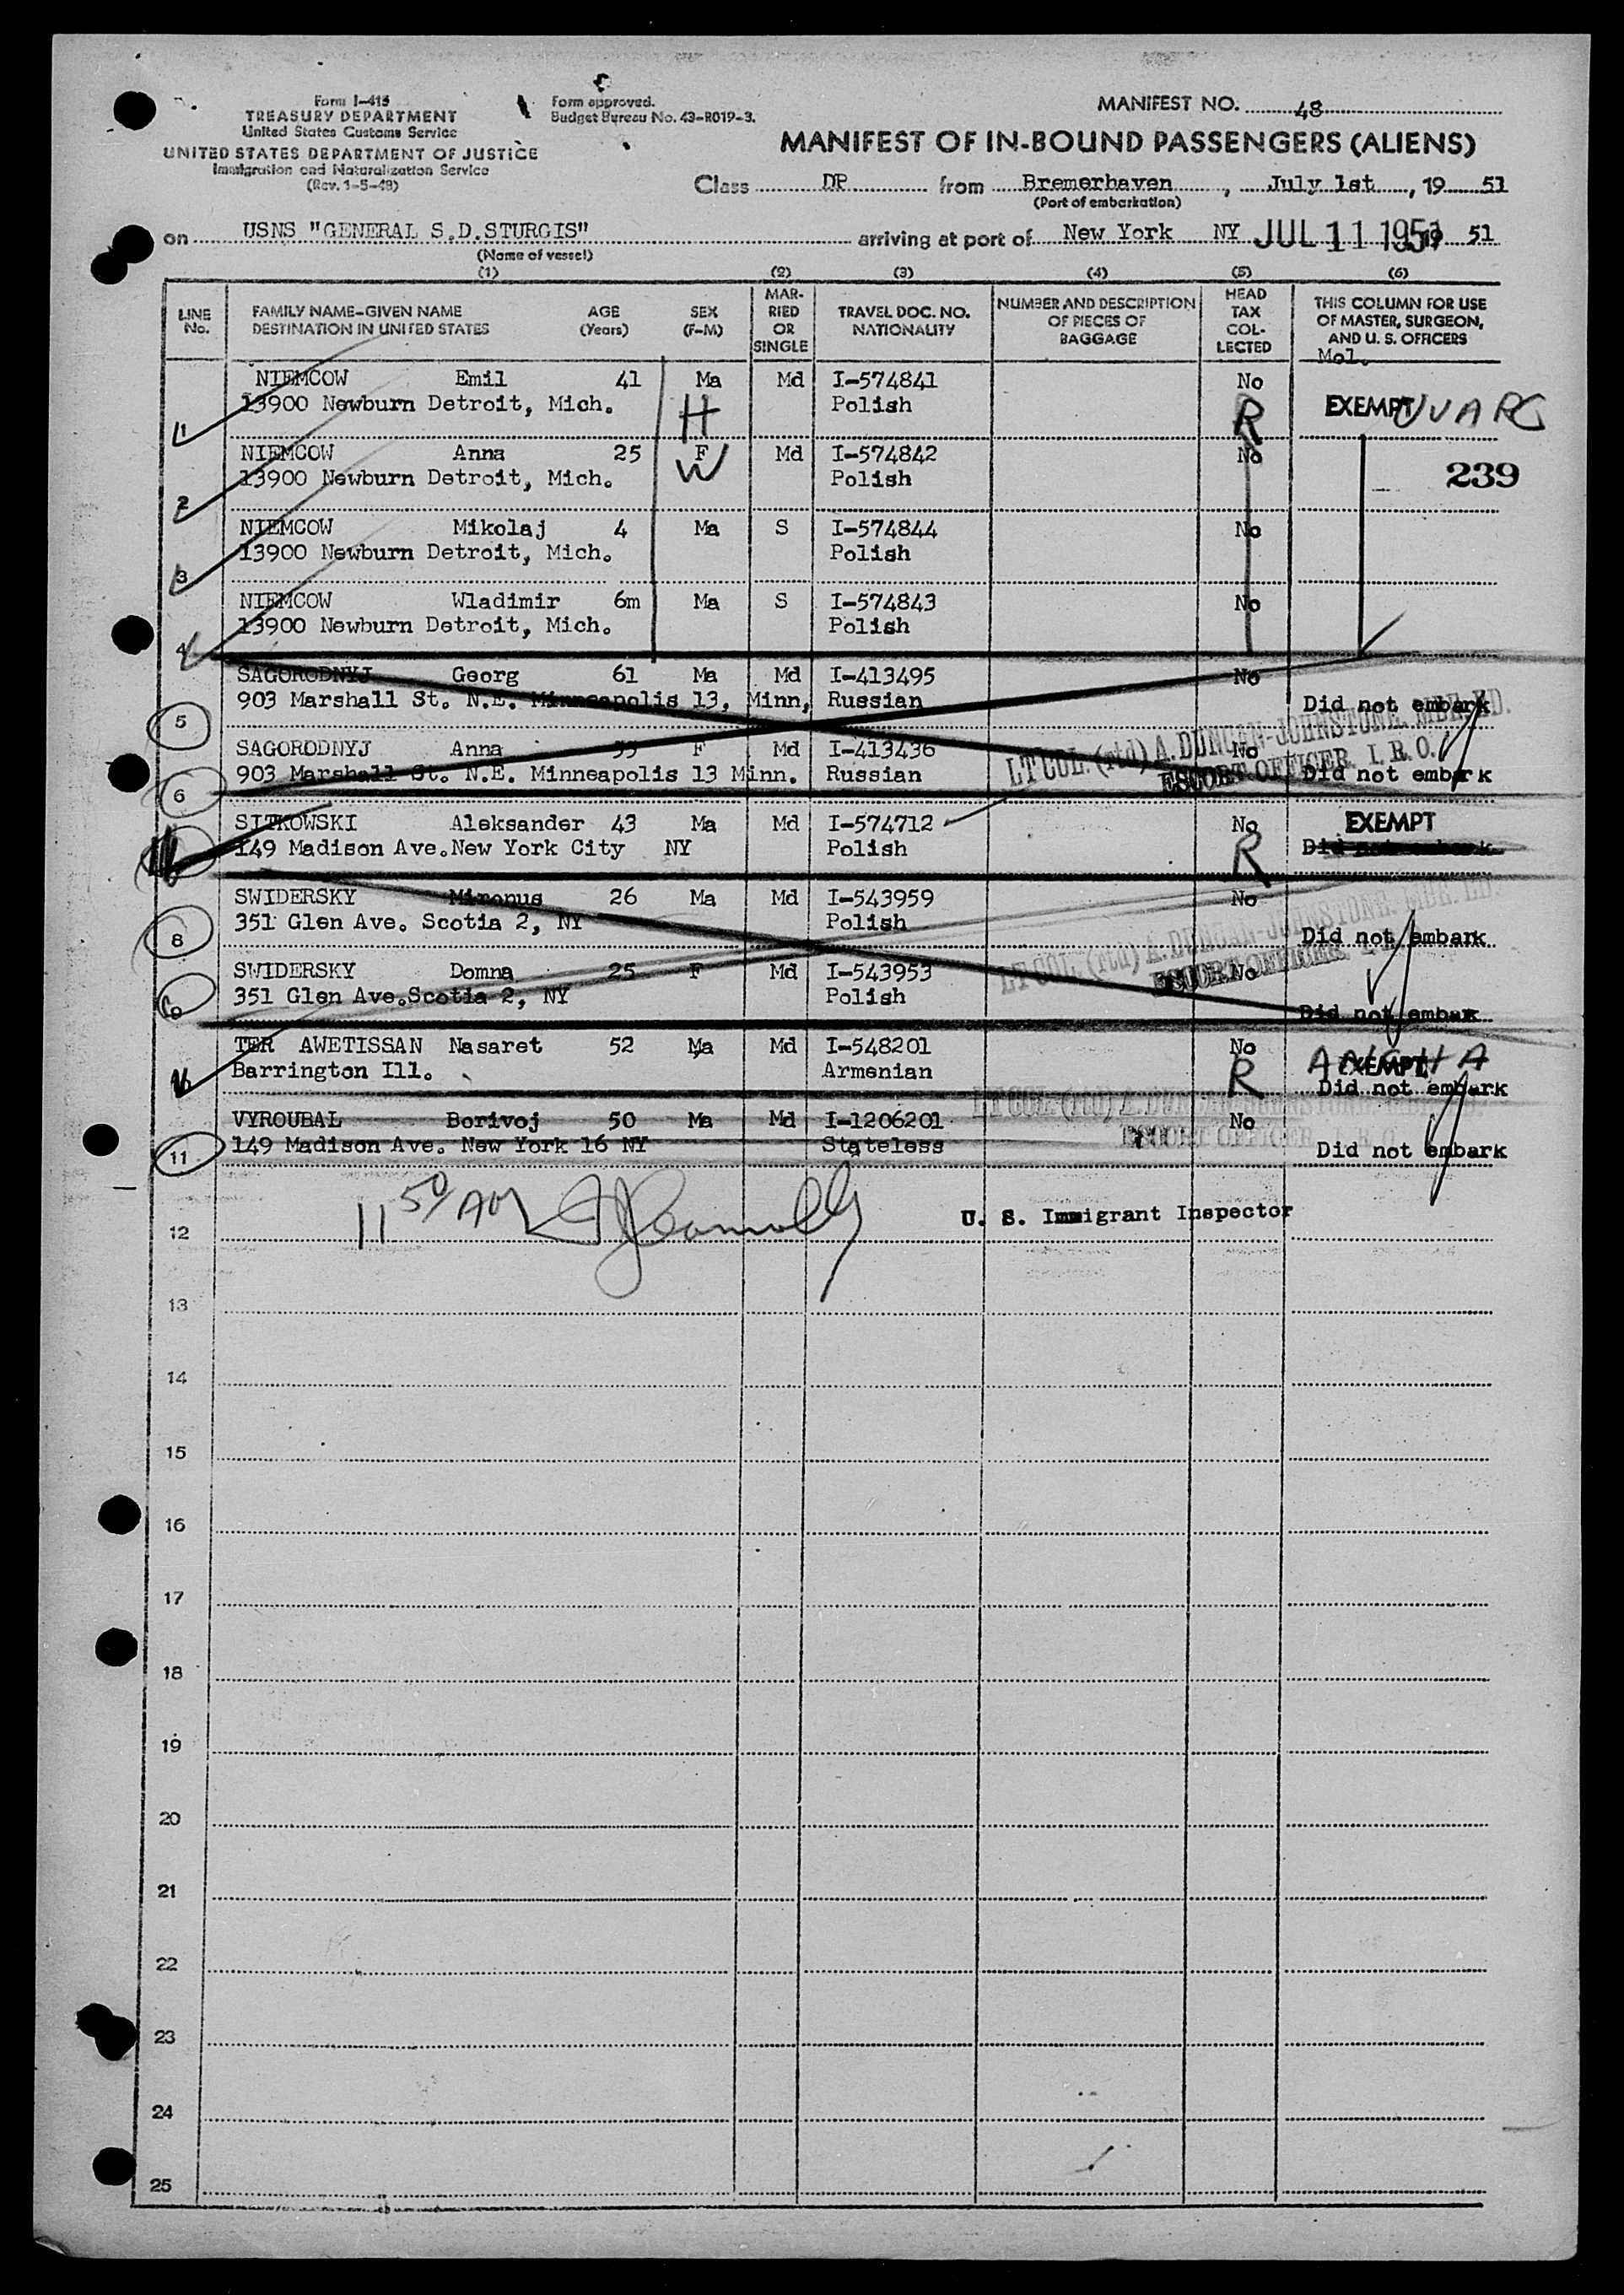 Form I-415
TREASURY DEPARTMENT
United States Customs Service
UNITED STATES DEPARTMENT OF JUSTICE
Immigration and Naturalization Service
(Rev. 1-5-49)
Form approved.
Budget Bureau No. 43-R019-3.
MANIFEST NO. 48
MANIFEST OF IN-BOUND PASSENGERS (ALIENS)
Class DP from Bremerhaven, July 1st, 19 51
(Port of embarkation)
on USNS "GENERAL S.D.STURGIS" arriving at port of New York NY JUL 11 1951 19 51
(Name of vessel)
(1) (2) (3) (4) (5) (6)
LINE No.
FAMILY NAME-GIVEN NAME
DESTINATION IN UNITED STATES
AGE (Years)
SEX (F-M)
MARRIED OR SINGLE
TRAVEL DOC. NO. NATIONALITY
NUMBER AND DESCRIPTION OF PIECES OF BAGGAGE
HEAD TAX COLLECTED
THIS COLUMN FOR USE OF MASTER, SURGEON, AND U. S. OFFICERS
Mol.
NIEMCOW Emil 41 Ma Md I-574841 No
1 13900 Newburn Detroit, Mich. H Polish R EXEMPT
NIEMCOW Anna 25 F Md I-574842 No
2 13900 Newburn Detroit, Mich. W Polish 239
NIEMCOW Mikolaj 4 Ma S I-574844 No
3 13900 Newburn Detroit, Mich. Polish
NIEMCOW Wladimir 6m Ma S I-574843 No
4 13900 Newburn Detroit, Mich. Polish
SAGORODNYJ Georg 61 Ma Md I-413495 No
5 903 Marshall St. N.E. Minneapolis 13, Minn, Russian Did not embark
SAGORODNYJ Anna F Md I-413436 No
6 903 Marshall St. N.E. Minneapolis 13 Minn. Russian Did not embark
LT COL. (rtd) A. DUNCAN-JOHNSTONE. MBE. ED.
ESCORT OFFICER. I. R. O.
SITKOWSKI Aleksander 43 Ma Md I-574712 No EXEMPT
149 Madison Ave.New York City NY Polish R Did not embark
SWIDERSKY Mironus 26 Ma Md I-543959 No
8 351 Glen Ave. Scotia 2, NY Polish Did not embark
SWIDERSKY Domna 25 F Md I-543953 No
9 351 Glen Ave.Scotia 2, NY Polish Did not embark
LT COL. (rtd) A. DUNCAN-JOHNSTONE. MBE. ED.
ESCORT OFFICER.
TER AWETISSAN Nasaret 52 Ma Md I-548201 No EXEMPT
Barrington Ill. Armenian R Did not embark
LT COL. (rtd) A. DUNCAN-JOHNSTONE
ESCORT OFFICER. I. R. O.
VYROUBAL Borivoj 50 Ma Md I-1206201 No
11 149 Madison Ave. New York 16 NY Stateless Did not embark
12 11 50/AM U. S. Immigrant Inspector
13
14
15
16
17
18
19
20
21
22
23
24
25